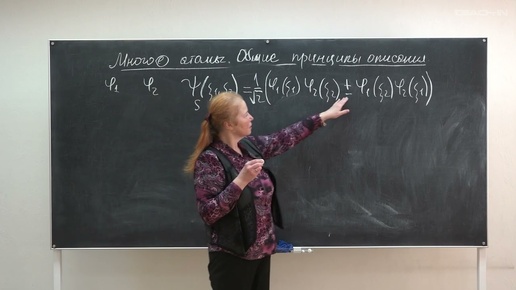 Много ē атомы. Общие принципы описания
φ₁ φ₂ Ψ_S(ξ₁,ξ₂) = 1/√2 (φ₁(ξ₁) φ₂(ξ₂) ± φ₁(ξ₂) φ₂(ξ₁))